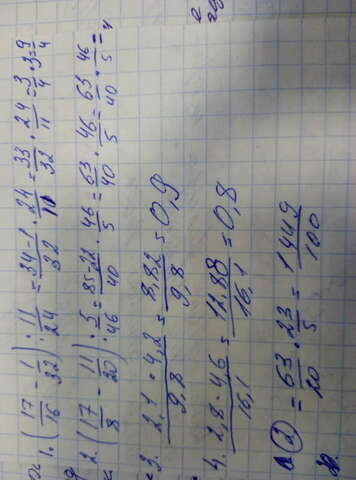 1. (17/16 - 1/32) : 11/24 = 34-1/32 · 24/11 = 33/32 · 24/11 = 3/4 · 3 = 9/4
2. (17/8 - 11/20) : 5/46 = 85-22/40 · 46/5 = 63/40 · 46/5 = 63/40 · 46/5 =
3. 2,1 · 4,2 / 9,8 = 8,82/9,8 = 0,9
4. 2,8 · 4,6 / 16,1 = 12,88/16,1 = 0,8
(2) = 63/20 · 23/5 = 1449/100